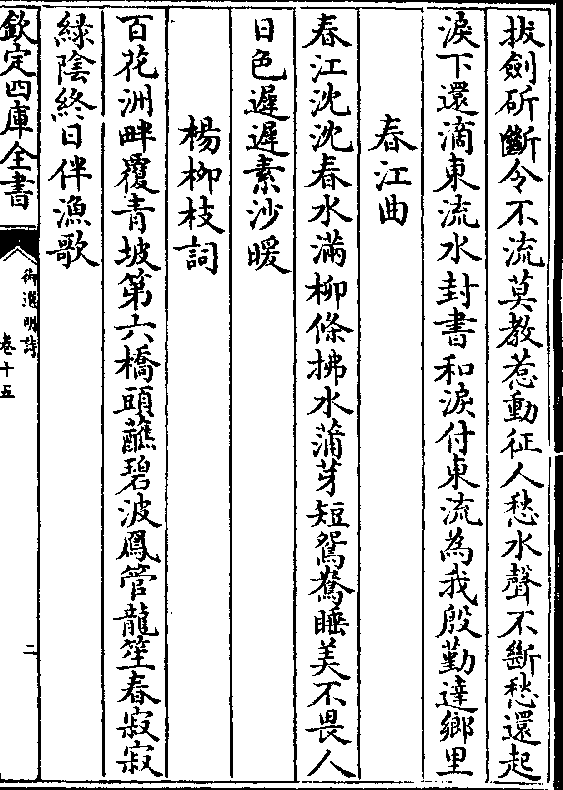 拔劍斫斷令不流莫教惹動征人愁水聲不斷愁還起
淚下還滴東流水封書和淚付東流為我殷勤達鄉里
春江曲
春江沈沈春水滿柳條拂水蒲芽短鴛鴦睡美不畏人
日色遲遲素沙暖
楊柳枝詞
百花洲畔覆青坡第六橋頭蘸碧波鳳管龍笙春寂寂
緑陰終日伴漁歌
欽定四庫全書
御選明詩
卷十五
二